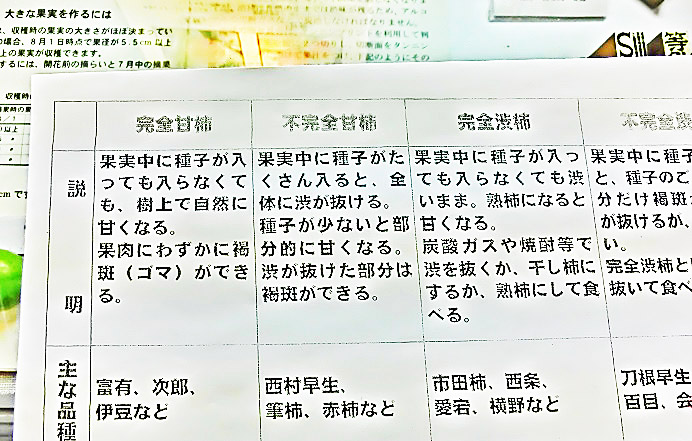 大きな果実を作るには
、収穫時の果実の大きさがほぼ決まってい
の場合、8月1日時点で果径が5.5cm以上
上の果実が収穫できます。
するには、開花前の摘らいと7月中の摘果
完全甘柿
不完全甘柿
完全渋柿
不完全渋
説明
果実中に種子が入
っても入らなくて
も、樹上で自然に
甘くなる。
果肉にわずかに褐
斑（ゴマ）ができ
る。
果実中に種子がた
くさん入ると、全
体に渋が抜ける。
種子が少ないと部
分的に甘くなる。
渋が抜けた部分は
褐斑ができる。
果実中に種子が入っ
ても入らなくても渋
いまま。熟柿になると
甘くなる。
炭酸ガスや焼酎等で
渋を抜くか、干し柿に
するか、熟柿にして食
べる。
果実中に種子
と、種子のご
分だけ褐斑
が抜けるが、
い。
完全渋柿と
抜いて食べ
主な品種
富有、次郎、
伊豆など
西村早生、
筆柿、赤柿など
市田柿、西条、
愛宕、横野など
刀根早生
百目、会